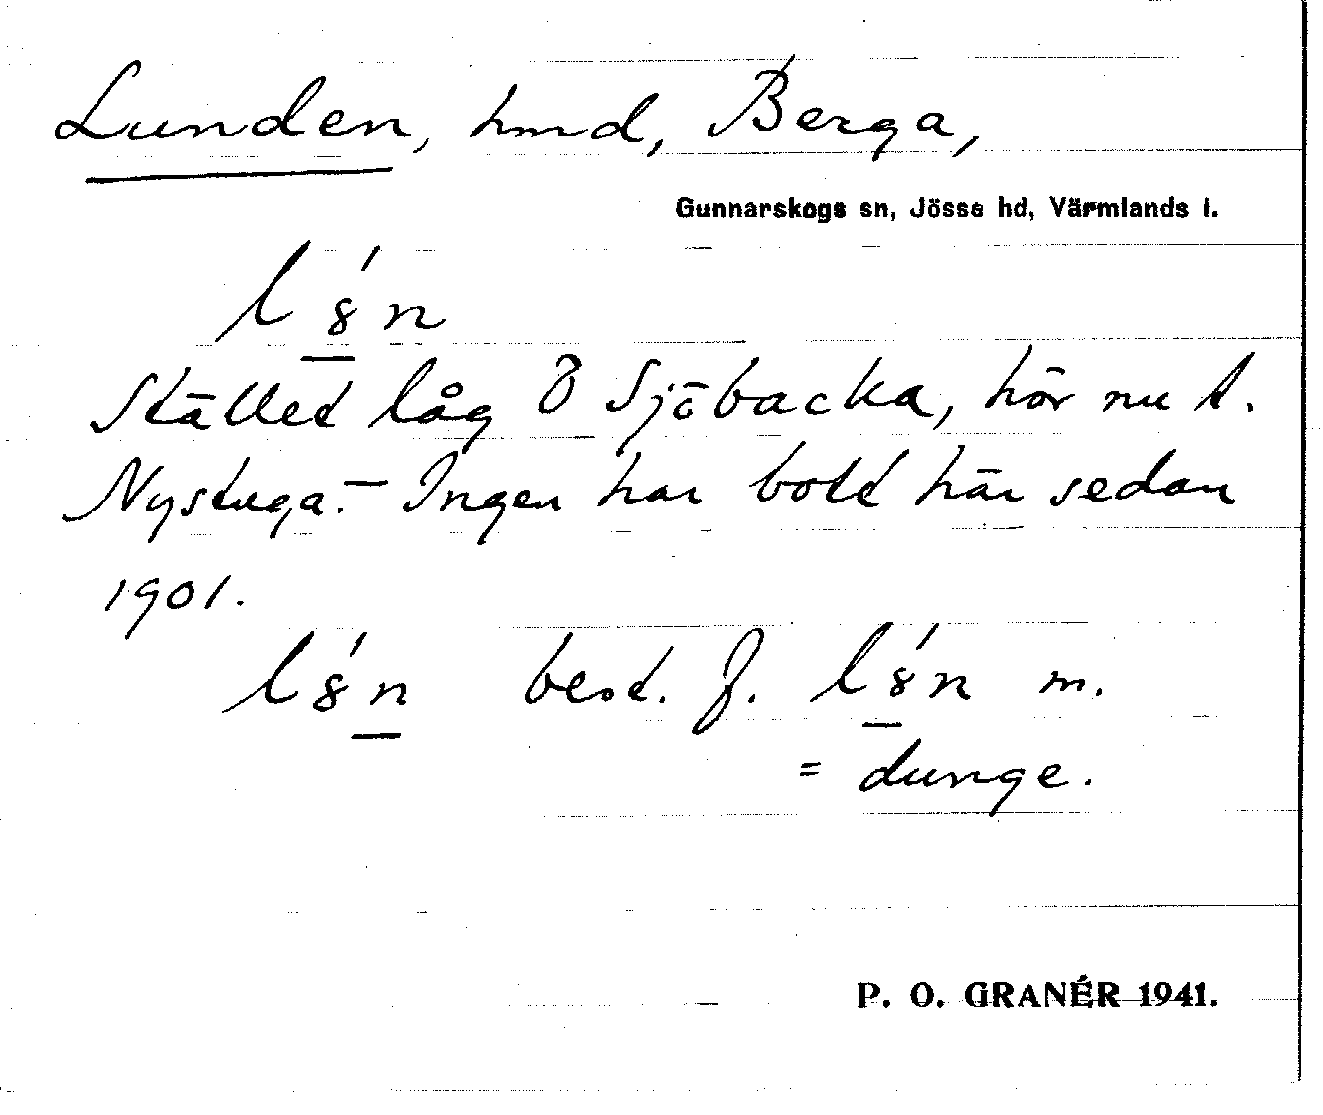 Lunden, hmd, Berga,
Gunnarskogs sn, Jösse hd, Värmlands l.
l8́n
Stället låg Ö Sjöbacka, hör nu t.
Nystuga. – Ingen har bott här sedan
1901.
l8́n best. f. l8́n m.
= dunge.
P. O. GRANÉR 1941.